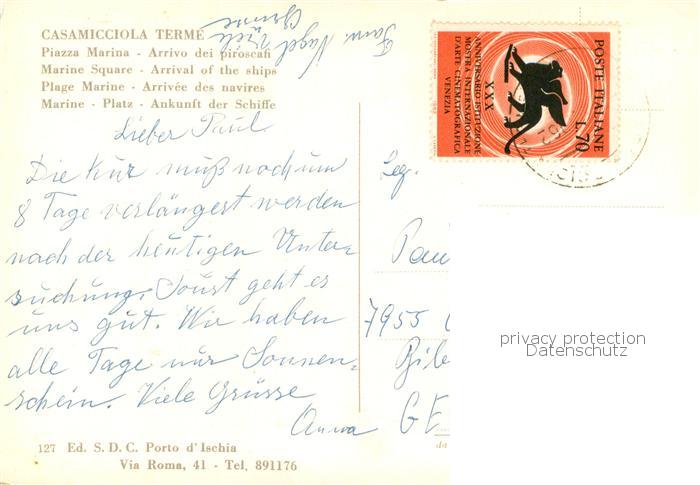 CASAMICCIOLA TERME
Piazza Marina - Arrivo dei piroscafi
Marine Square - Arrival of the ships
Plage Marine - Arrivée des navires
Marine - Platz - Ankunft der Schiffe
Lieber Paul
Die Kur muß noch um
8 Tage verlängert werden
nach der heutigen Unter=
suchung. Sonst geht es
uns gut. Wir haben
alle Tage nur Sonnen=
schein. Viele Grüsse
Anna
Fam. Nagel
Viele
Grüsse
127 Ed. S. D. C. Porto d'Ischia
Via Roma, 41 - Tel. 891176
POSTE ITALIANE
L.70
XXX
ANNIVERSARIO ISTITUZIONE
MOSTRA INTERNAZIONALE
D'ARTE CINEMATOGRAFICA
VENEZIA
Pau
7955
GE
privacy protection
Datenschutz